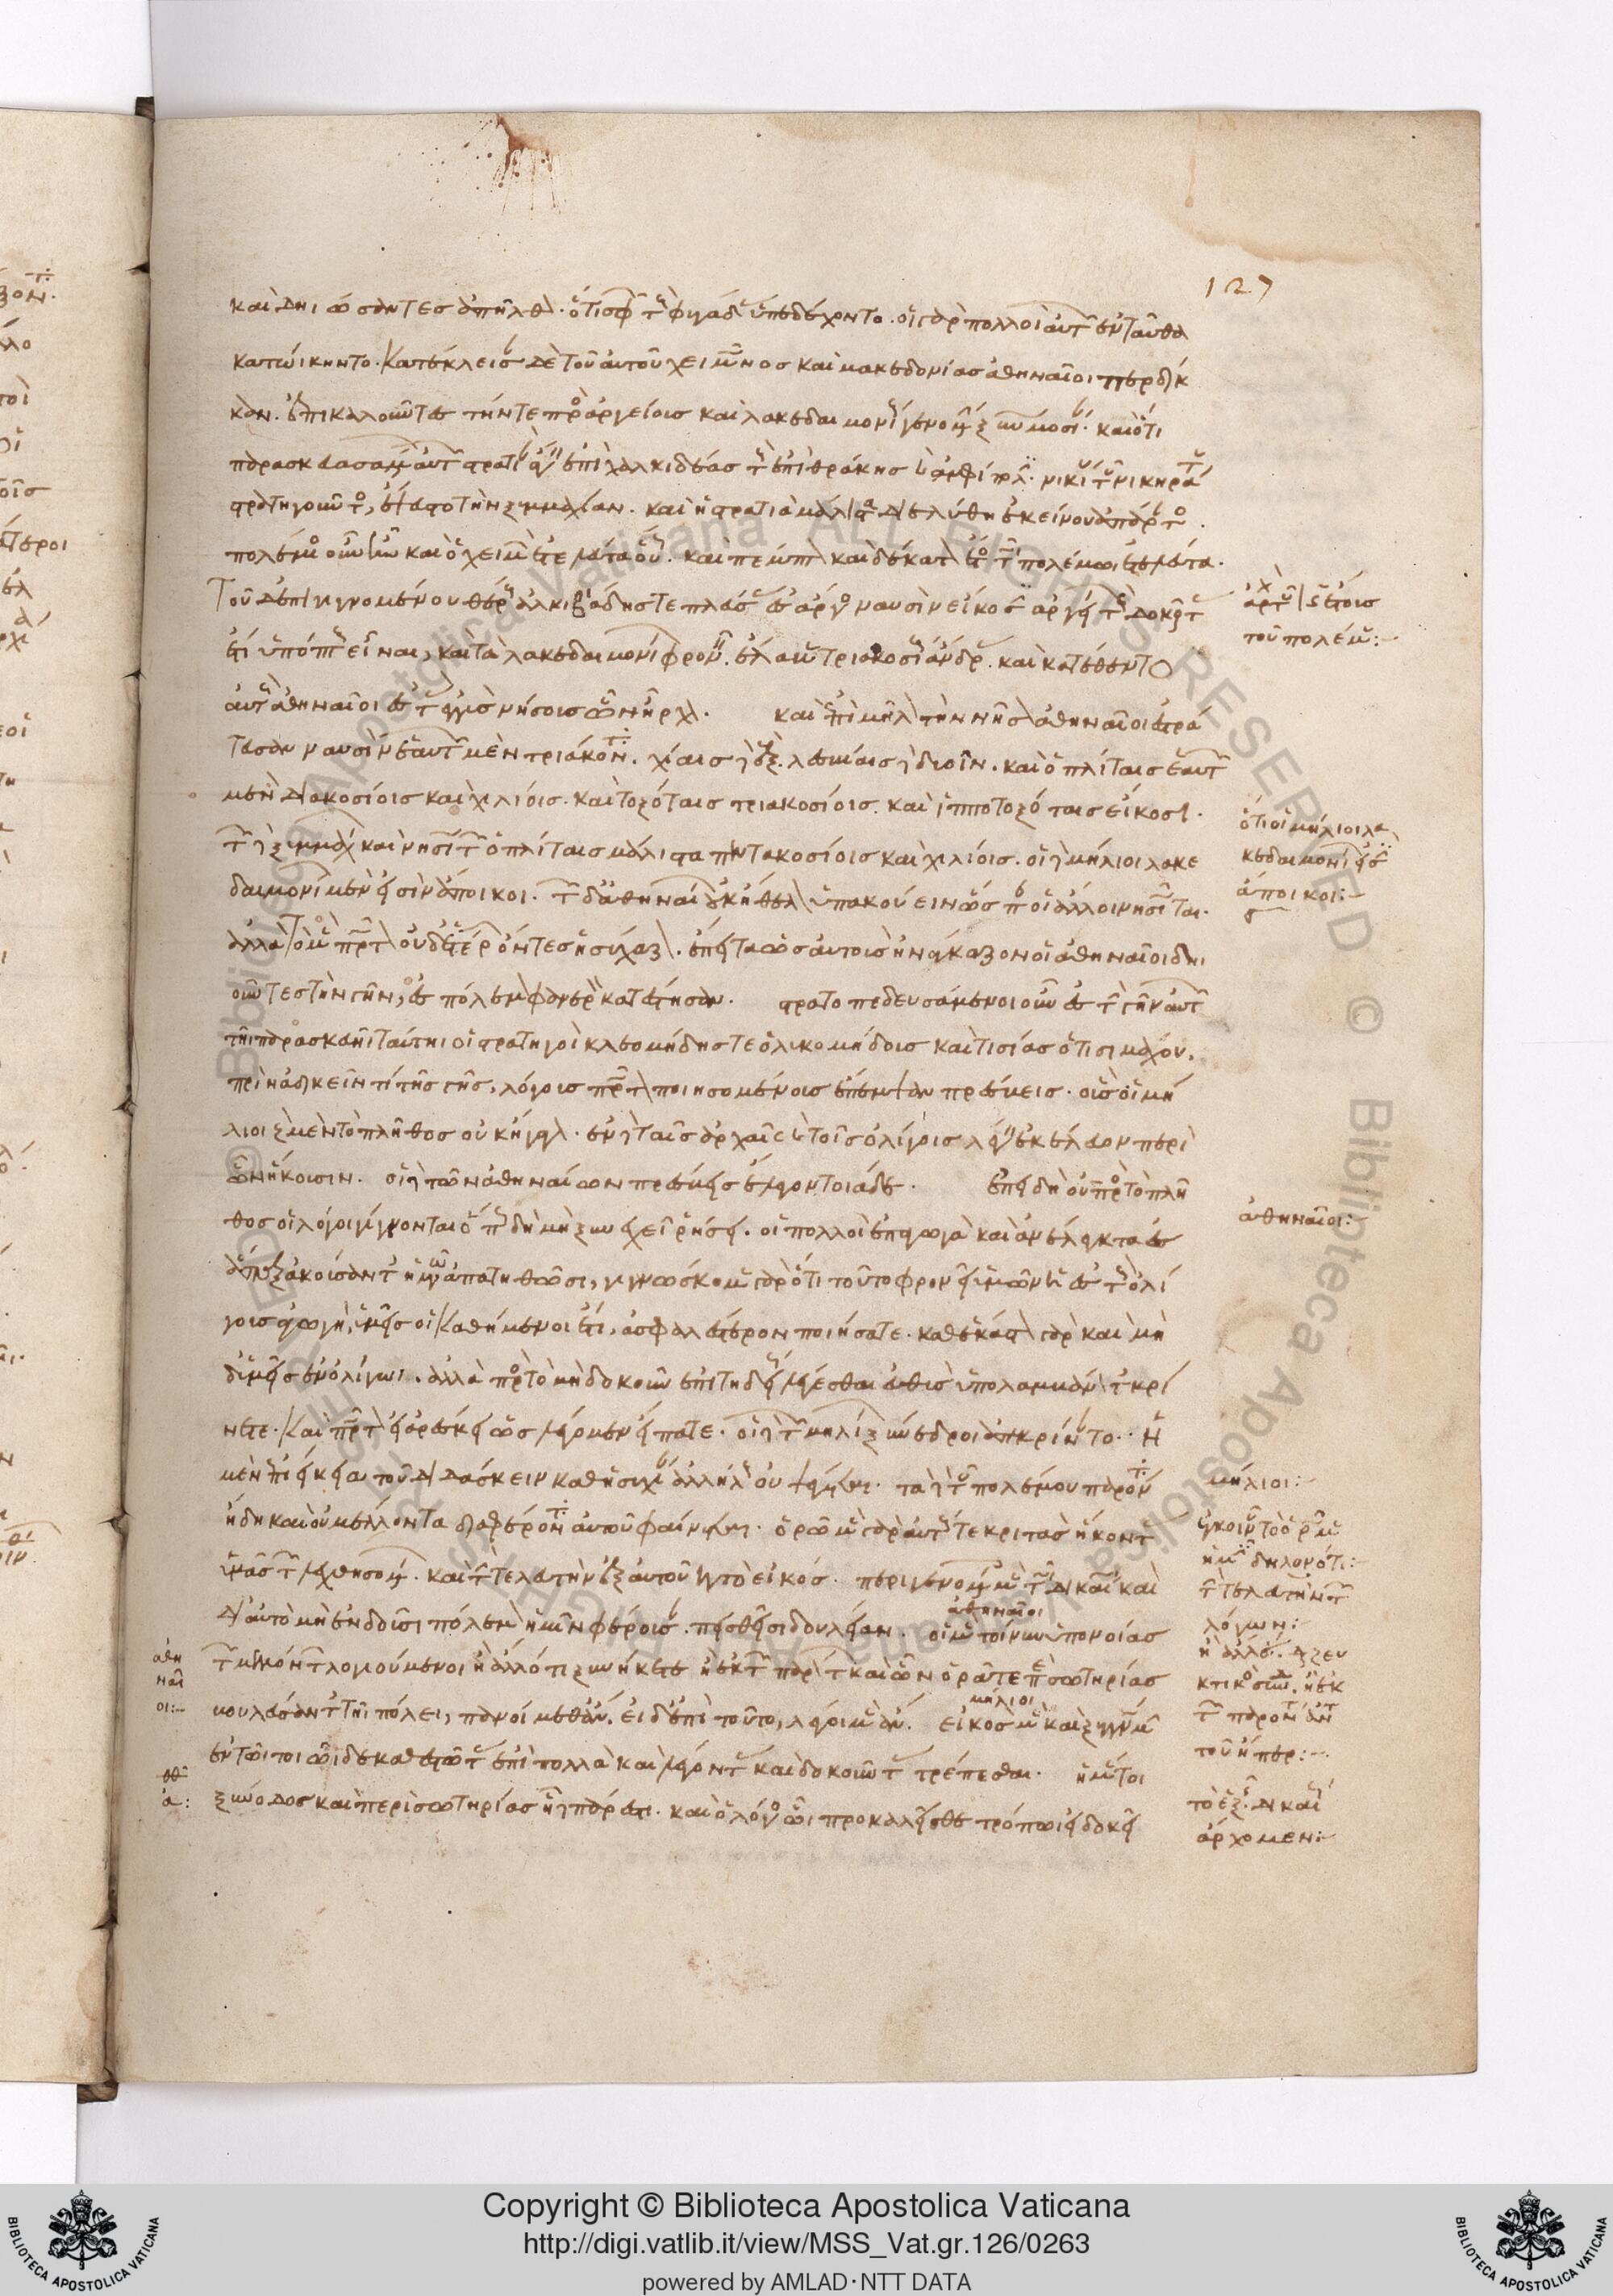 καὶ δηιώσαντες ἀπῆλθον. ὅτι σφῶν τοὺς φυγάδας ὑπεδέχοντο. οἱ γὰρ πολλοὶ αὐτῶν ἐνταῦθα
κατώικηντο. κατέκλεισαν δὲ τοῦ αὐτοῦ χειμῶνος καὶ μακεδονίας ἀθηναῖοι περδίκ
καν. ἐπικαλοῦντες τήν τε πρὸς ἀργείους καὶ λακεδαιμονίους γενομένην ξυνωμοσίαν. καὶ ὅτι
παρασκευασαμένων αὐτῶν στρατιὰν ἄγειν ἐπὶ χαλκιδέας τοὺς ἐπὶ θράκης καὶ ἀμφίπολιν. νικίου τοῦ νικηράτου
στρατηγοῦντος, ἔψευστο τὴν ξυμμαχίαν. καὶ ἡ στρατιὰ μάλιστα διελύθη ἐκείνου ἀπάραντος.
πολέμιος οὖν ἦν καὶ ὁ χειμὼν ἐτελεύτα οὗτος. καὶ πέμπτον καὶ δέκατον ἔτος τῶι πολέμωι ἐτελεύτα.
Τοῦ δ' ἐπιγιγνομένου θέρους ἀλκιβιάδης τε πλεύσας ἐς ἄργος ναυσὶν εἴκοσιν ἀργείων τοὺς δοκοῦντας
ἔτι ὑπόπτους εἶναι, καὶ τὰ λακεδαιμονίων φρονεῖν. ἔλαβε τριακοσίους ἄνδρας. καὶ κατέθεντο
αὐτοὺς ἀθηναῖοι ἐς τὰς ἐγγὺς νήσους ὧν ἦρχον. καὶ ἐπὶ μῆλον τὴν νῆσον ἀθηναῖοι ἐστρά
τευσαν ναυσὶν ἑαυτῶν μὲν τριάκοντα. χίαις δὲ ἕξ. λεσβίαις δὲ δυοῖν. καὶ ὁπλίταις ἑαυτῶν
μὲν διακοσίοις καὶ χιλίοις. καὶ τοξόταις τριακοσίοις. καὶ ἱπποτοξόταις εἴκοσι.
τῶν δὲ ξυμμάχων καὶ νησιωτῶν ὁπλίταις μάλιστα πεντακοσίοις καὶ χιλίοις. οἱ δὲ μήλιοι λακε
δαιμονίων μέν εἰσιν ἄποικοι. τῶν δ' ἀθηναίων οὐκ ἤθελον ὑπακούειν ὥσπερ οἱ ἄλλοι νησιῶται.
ἀλλὰ τὸ μὲν πρῶτον οὐδετέρων ὄντες ἡσύχαζον. ἔπειτα ὡς αὐτοὺς ἠνάγκαζον οἱ ἀθηναῖοι δηι
οῦντες τὴν γῆν, ἐς πόλεμον φανερὸν κατέστησαν. στρατοπεδευσάμενοι οὖν ἐς τὴν γῆν αὐτῶν
τῆι παρασκευῆι ταύτηι οἱ στρατηγοὶ κλεομήδης τε ὁ λυκομήδους καὶ τισίας ὁ τισιμάχου.
πρὶν ἀδικεῖν τι τῆς γῆς, λόγους πρῶτον ποιησομένους ἔπεμψαν πρέσβεις. οὓς οἱ μή
λιοι πρὸς μὲν τὸ πλῆθος οὐκ ἤγαγον. ἐν δὲ ταῖς ἀρχαῖς καὶ τοῖς ὀλίγοις λέγειν ἐκέλευον περὶ
ὧν ἥκουσιν. οἱ δὲ τῶν ἀθηναίων πρέσβεις ἔλεγον τοιάδε. ἐπειδὴ οὐ πρὸς τὸ πλῆ
θος οἱ λόγοι γίγνονται ὅπως δὴ μὴ ξυνεχεῖ ῥήσει. οἱ πολλοὶ ἐπαγωγὰ καὶ ἀνέλεγκτα ἐς
ἅπαξ ἀκούσαντες ἡμῶν ἀπατηθῶσι, γιγνώσκομεν γὰρ ὅτι τοῦτο φρονεῖ ἡμῶν ἡ ἐς τοὺς ὀλί
γους ἀγωγή, ὑμεῖς οἱ καθήμενοι ἔτι, ἀσφαλέστερον ποιήσατε. καθ' ἕκαστον γὰρ καὶ μὴ
δ' ὑμεῖς ἐν ὀλίγωι. ἀλλὰ πρὸς τὸ μὴ δοκοῦν ἐπιτηδείως λέγεσθαι εὐθὺς ὑπολαμβάνοντες κρί
νετε. καὶ πρῶτον εἰ ἀρέσκει ὡς λέγομεν εἴπατε. οἱ δὲ τῶν μηλίων ξύνεδροι ἀπεκρίναντο. Ἡ
μὲν ἐπιείκεια τοῦ διδάσκειν καθ' ἡσυχίαν ἀλλήλους οὐ ψέγεται. τὰ δὲ τοῦ πολέμου παρόντα
ἤδη καὶ οὐ μέλλοντα διαφέροντα αὐτοῦ φαίνεται. ὁρῶμεν γὰρ αὐτούς τε κριτὰς ἥκοντας
ὑμᾶς τῶν λεχθησομένων. καὶ τὴν τελευτὴν ἐξ αὐτοῦ κατὰ τὸ εἰκός. περιγενομένοις μὲν τῶι δικαίωι καὶ
δι' αὐτὸ μὴ ἐνδοῦσι πόλεμον ἡμῖν φέρουσαν. πεισθεῖσι δὲ δουλείαν. ἀθηναῖοι εἰ μὲν τοίνυν ὑπονοίας
τῶν μελλόντων λογιούμενοι ἢ ἄλλό τι ξυνήκετε ἢ ἐκ τῶν παρόντων καὶ ὧν ὁρᾶτε περὶ σωτηρίας
βουλεύσοντες τῆι πόλει, παυοίμεθ' ἄν. εἰ δ' ἐπὶ τοῦτο, λέγοιμεν ἄν. μήλιοι εἰκὸς μὲν καὶ ξυγγνώμη
ἐν τῶι τοιῶιδε καθεστῶτας ἐπὶ πολλὰ καὶ λέγοντας καὶ δοκοῦντας τρέπεσθαι. ἡ μέντοι
ξύνοδος καὶ περὶ σωτηρίας ἥδε πάρεστι. καὶ ὁ λόγος ὧι προκαλεῖσθε τρόπωι εἰ δοκεῖ
127
ἀρχὴ τοῦ ις ἔτους
τοῦ πολέμου:
ὅτι οἱ μήλιοι λα
κεδαιμονίων εἰσὶν
ἄποικοι:
ἀθηναῖοι:
μήλιοι:
δηλονότι:
λόγων:
τοῦ ἤπερ:
ἀρχομεν:
ἀθη
ναῖ
οι: